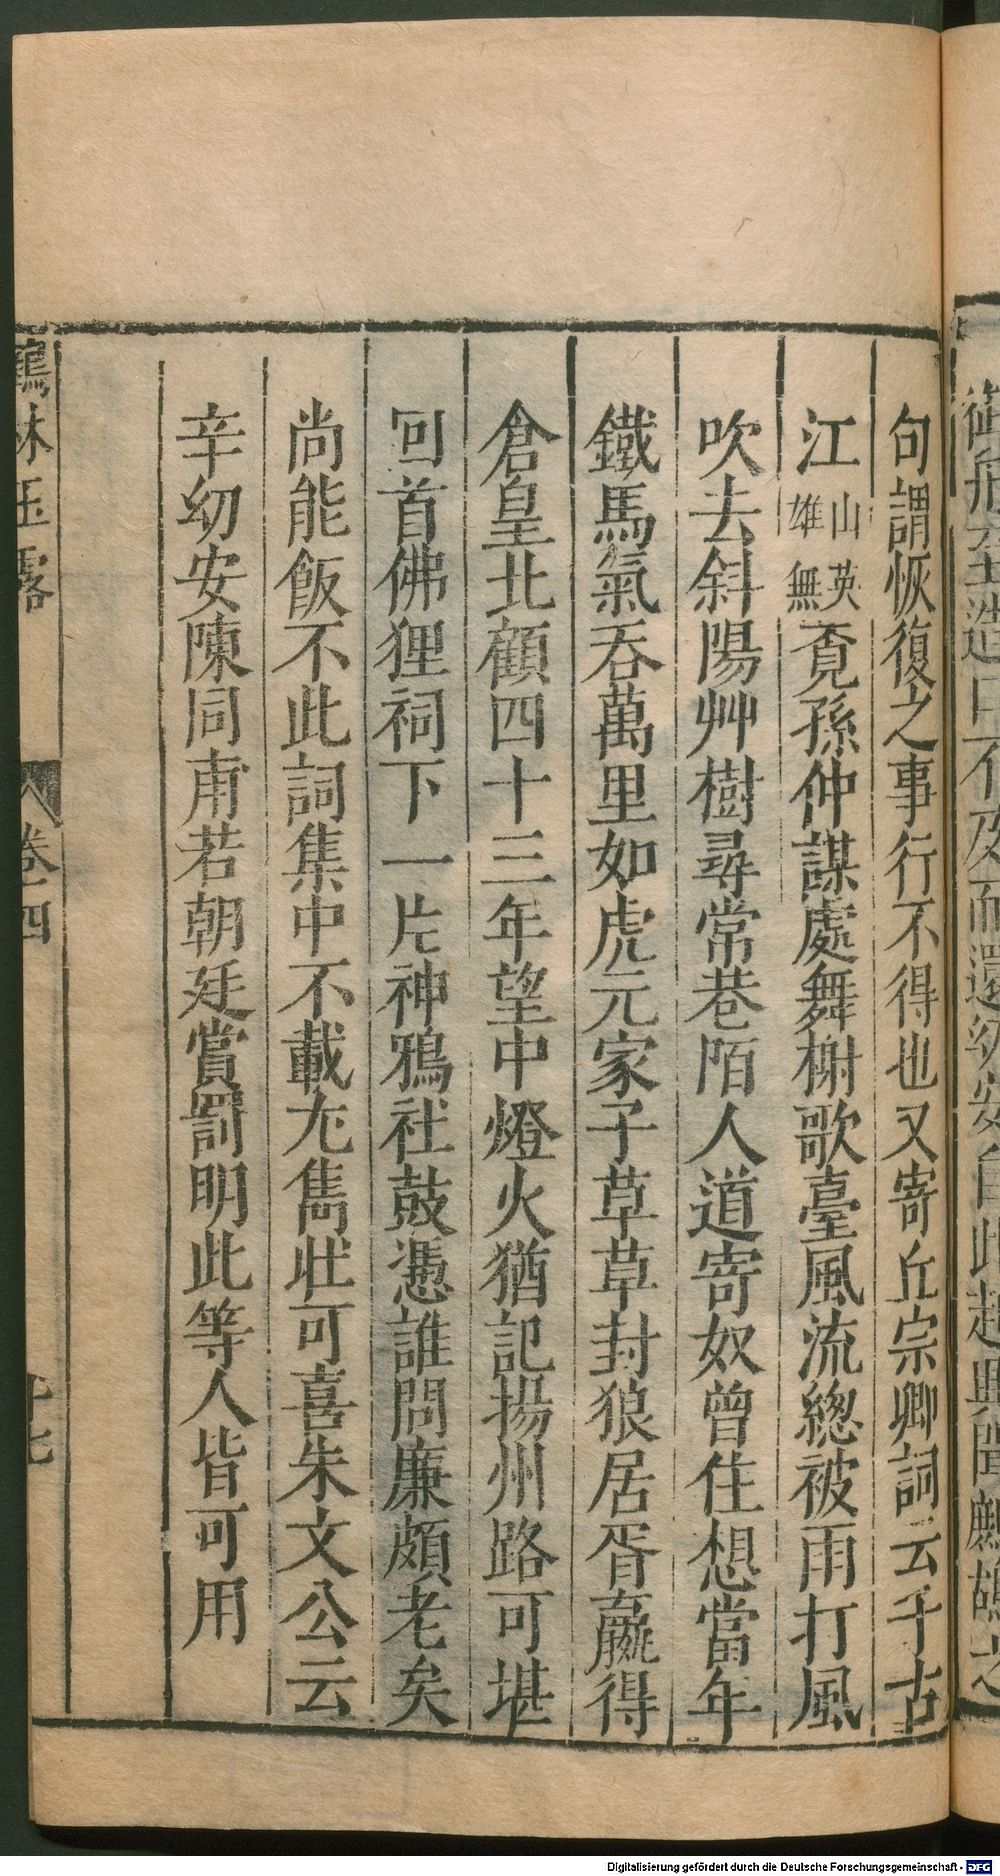 御舟至造口不及而還幼安自此起興聞鷓鴣之
句謂恢復之事行不得也又寄丘宗卿詞云千古
江山英雄無覔孫仲謀處舞榭歌臺風流總被雨打風
吹去斜陽艸樹尋常巷陌人道寄奴曾住想當年
鐵馬氣吞萬里如虎元家子草草封狼居胥羸得
倉皇北顧四十三年望中燈火猶記揚州路可堪
回首佛狸祠下一片神鴉社鼓憑誰問廉頗老矣
尚能飯不此詞集中不載尤雋壯可喜朱文公云
辛幼安陳同甫若朝廷賞罰明此等人皆可用
鶴林玉露 卷四 十七
Digitalisierung gefördert durch die Deutsche Forschungsgemeinschaft - DFG